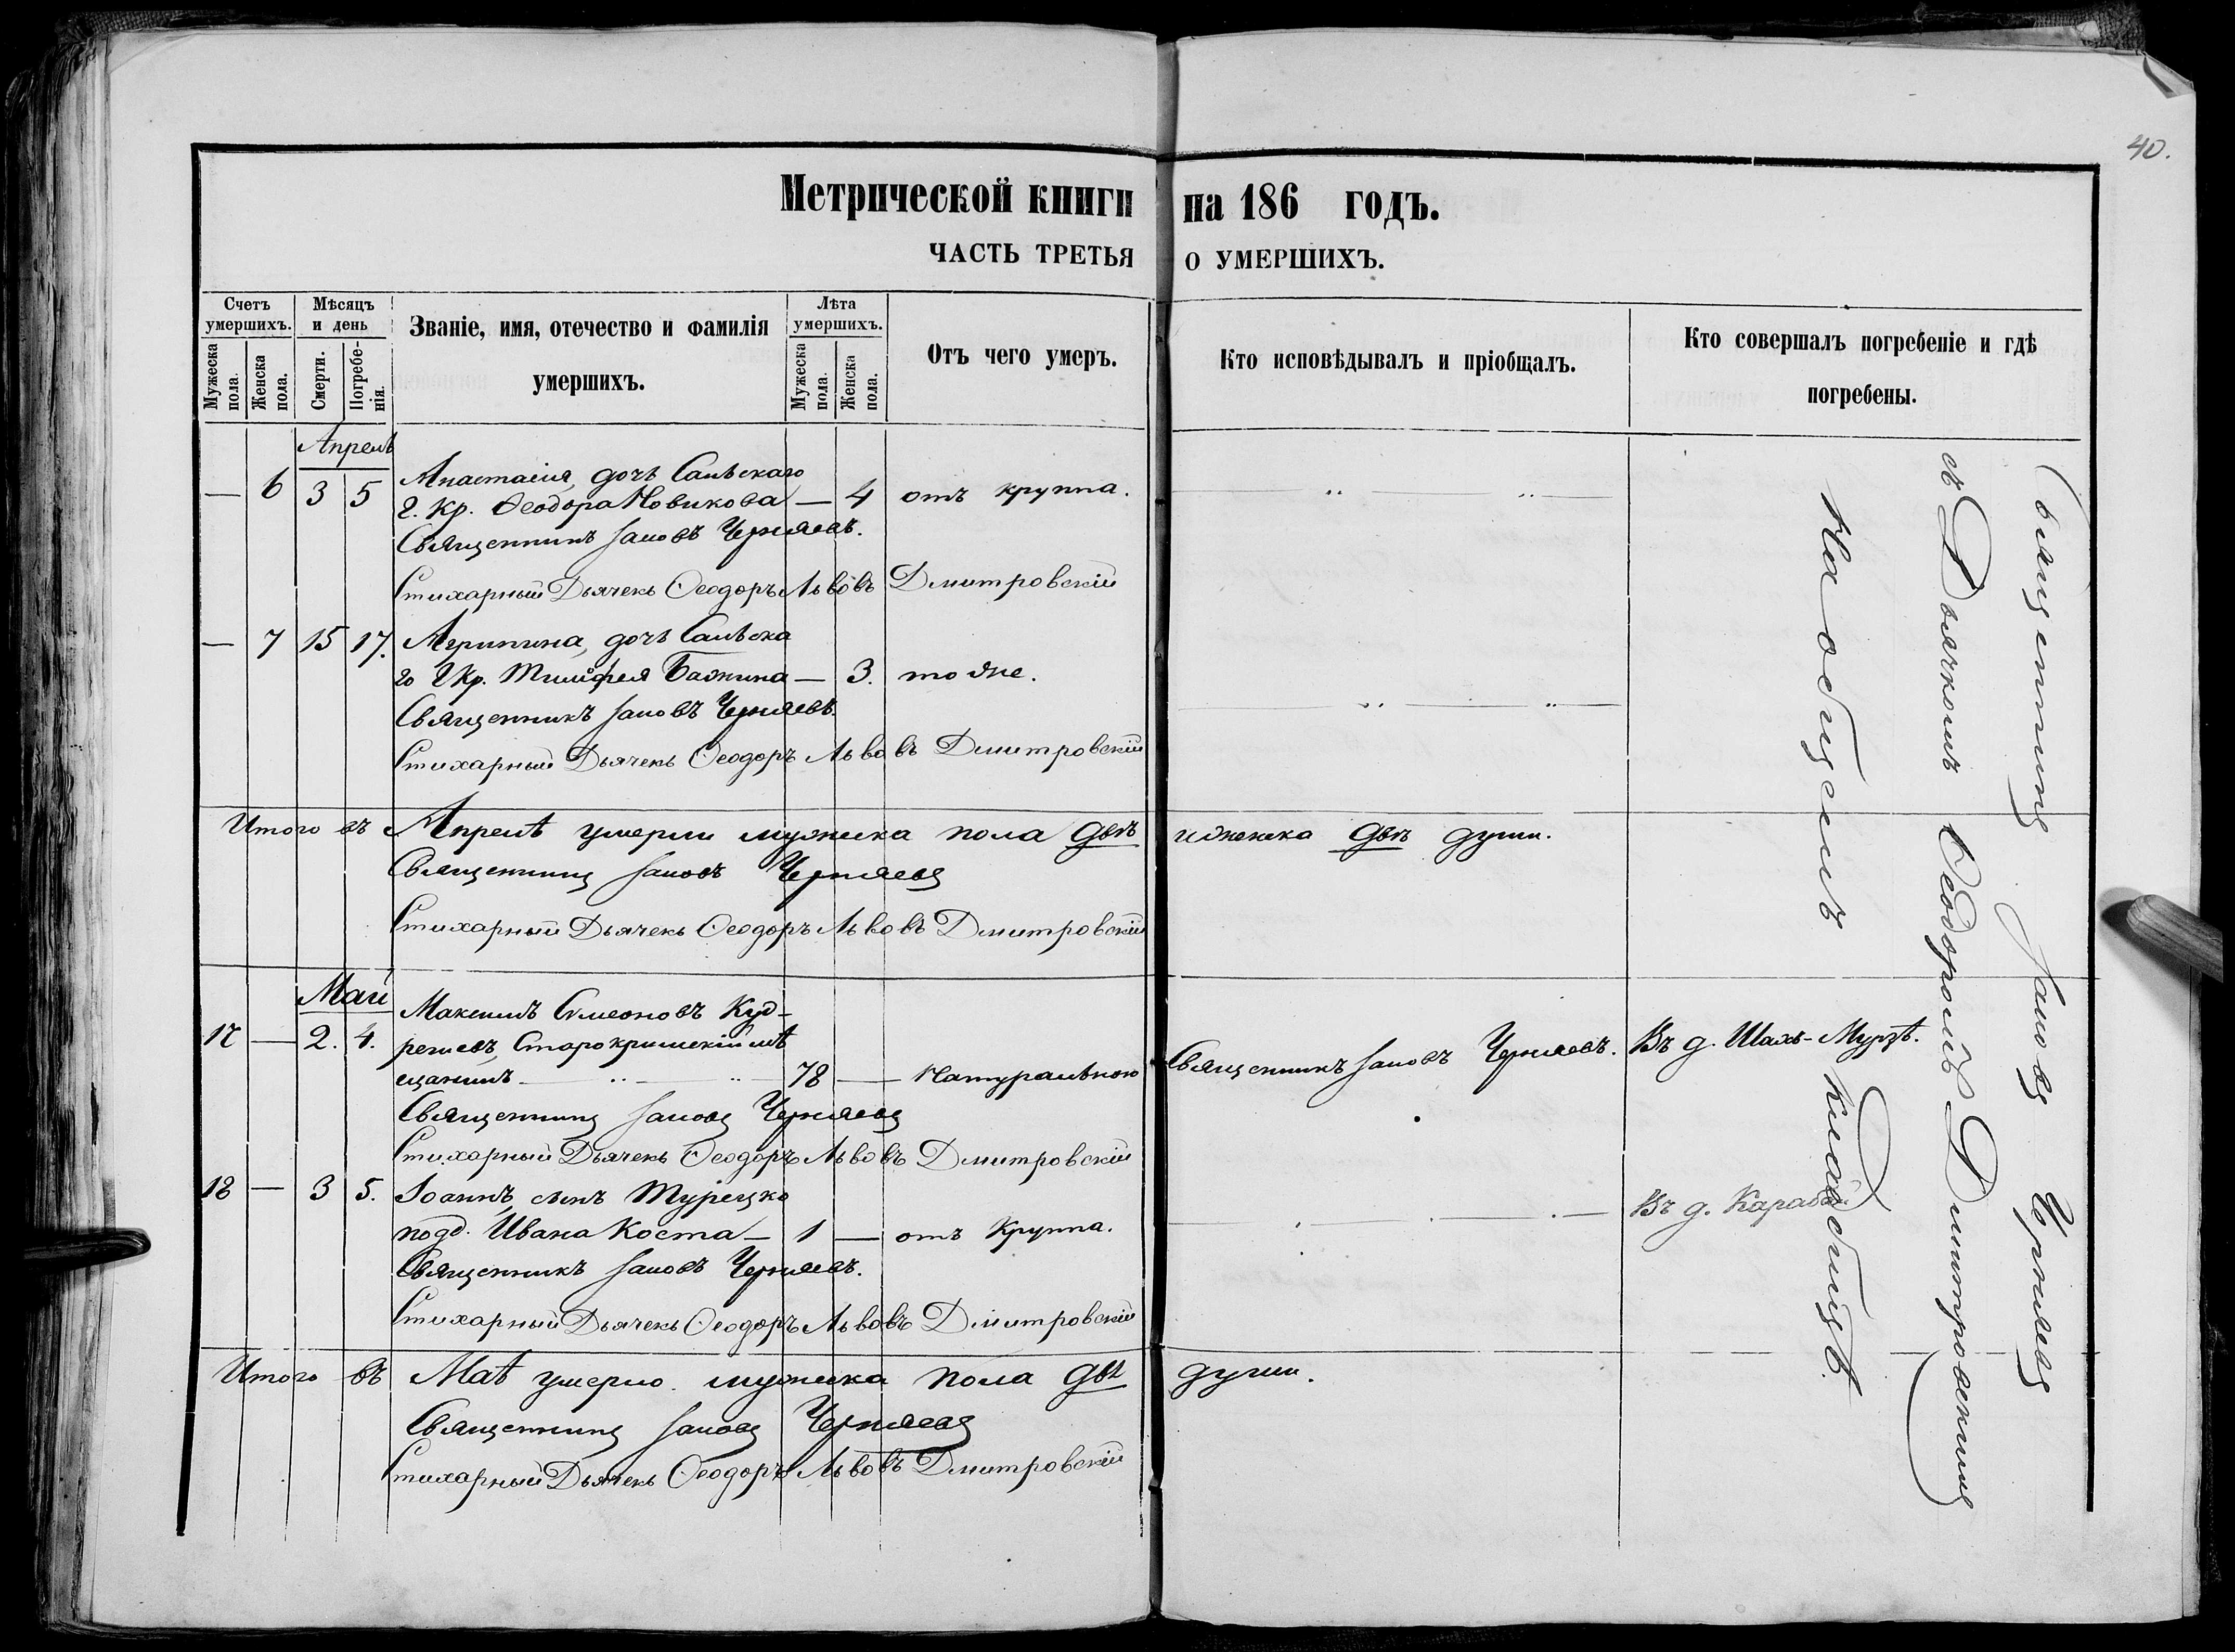 40.
Метрической книги на 186 годъ.
ЧАСТЬ ТРЕТЬЯ О УМЕРШИХЪ.
Счетъ умершихъ.
Мужеска пола.
Женска пола.
Мѣсяцъ и день
Смерти.
Погребе-нія.
Званіе, имя, отечество и фамилія
умершихъ.
Лѣта умершихъ.
Мужеска пола.
Женска пола.
Отъ чего умеръ.
Кто исповѣдывалъ и пріобщалъ.
Кто совершалъ погребеніе и гдѣ
погребены.
Апрель
Анастасія, дочь Сальскаго
— 6 3 5 г. кр. Ѳеодора Новикова — 4 отъ круппа.
Священникъ Іаковъ Черняевъ.
Стихарный Дьячекъ Ѳеодоръ Львовъ Дмитровскій
— 7 15 17. Агрипина, дочь Сальска
го г кр. Тимофея Бажина — 3. тоже.
Священникъ Іаковъ Черняевъ.
Стихарный Дьячекъ Ѳеодоръ Львовъ Дмитровскій
Итого въ Апрелѣ умерли мужеска пола двѣ и женска двѣ души.
Священникъ Іаковъ Черняевъ
Стихарный Дьячекъ Ѳеодоръ Львовъ Дмитровскій
Май
Максимъ Сѵмеоновъ Куд-
17 — 2. 4. Старокрымскій мѣ
щанинъ 78 — Натуральною Священникъ Іаковъ Черняевъ. Въ д. Шахъ-Мурзѣ.
Священникъ Іаковъ Черняевъ
Стихарный Дьячекъ Ѳеодоръ Львовъ Дмитровскій
18 — 3 5. Іоаннъ, сынъ Турецко
подд. Ивана Коста — 1 — отъ Круппа. Въ д. Карабай
Священникъ Іаковъ Черняевъ.
Стихарный Дьячекъ Ѳеодоръ Львовъ Дмитровскій
Итого въ Маѣ умерло мужеска пола двѣ души.
Священникъ Іаковъ Черняевъ
Стихарный Дьячекъ Ѳеодоръ Львовъ Дмитровскій
Священникъ Іаковъ Черняевъ
съ Дьячкомъ Ѳеодоромъ Дмитровскимъ
На общемъ кладбищѣ.